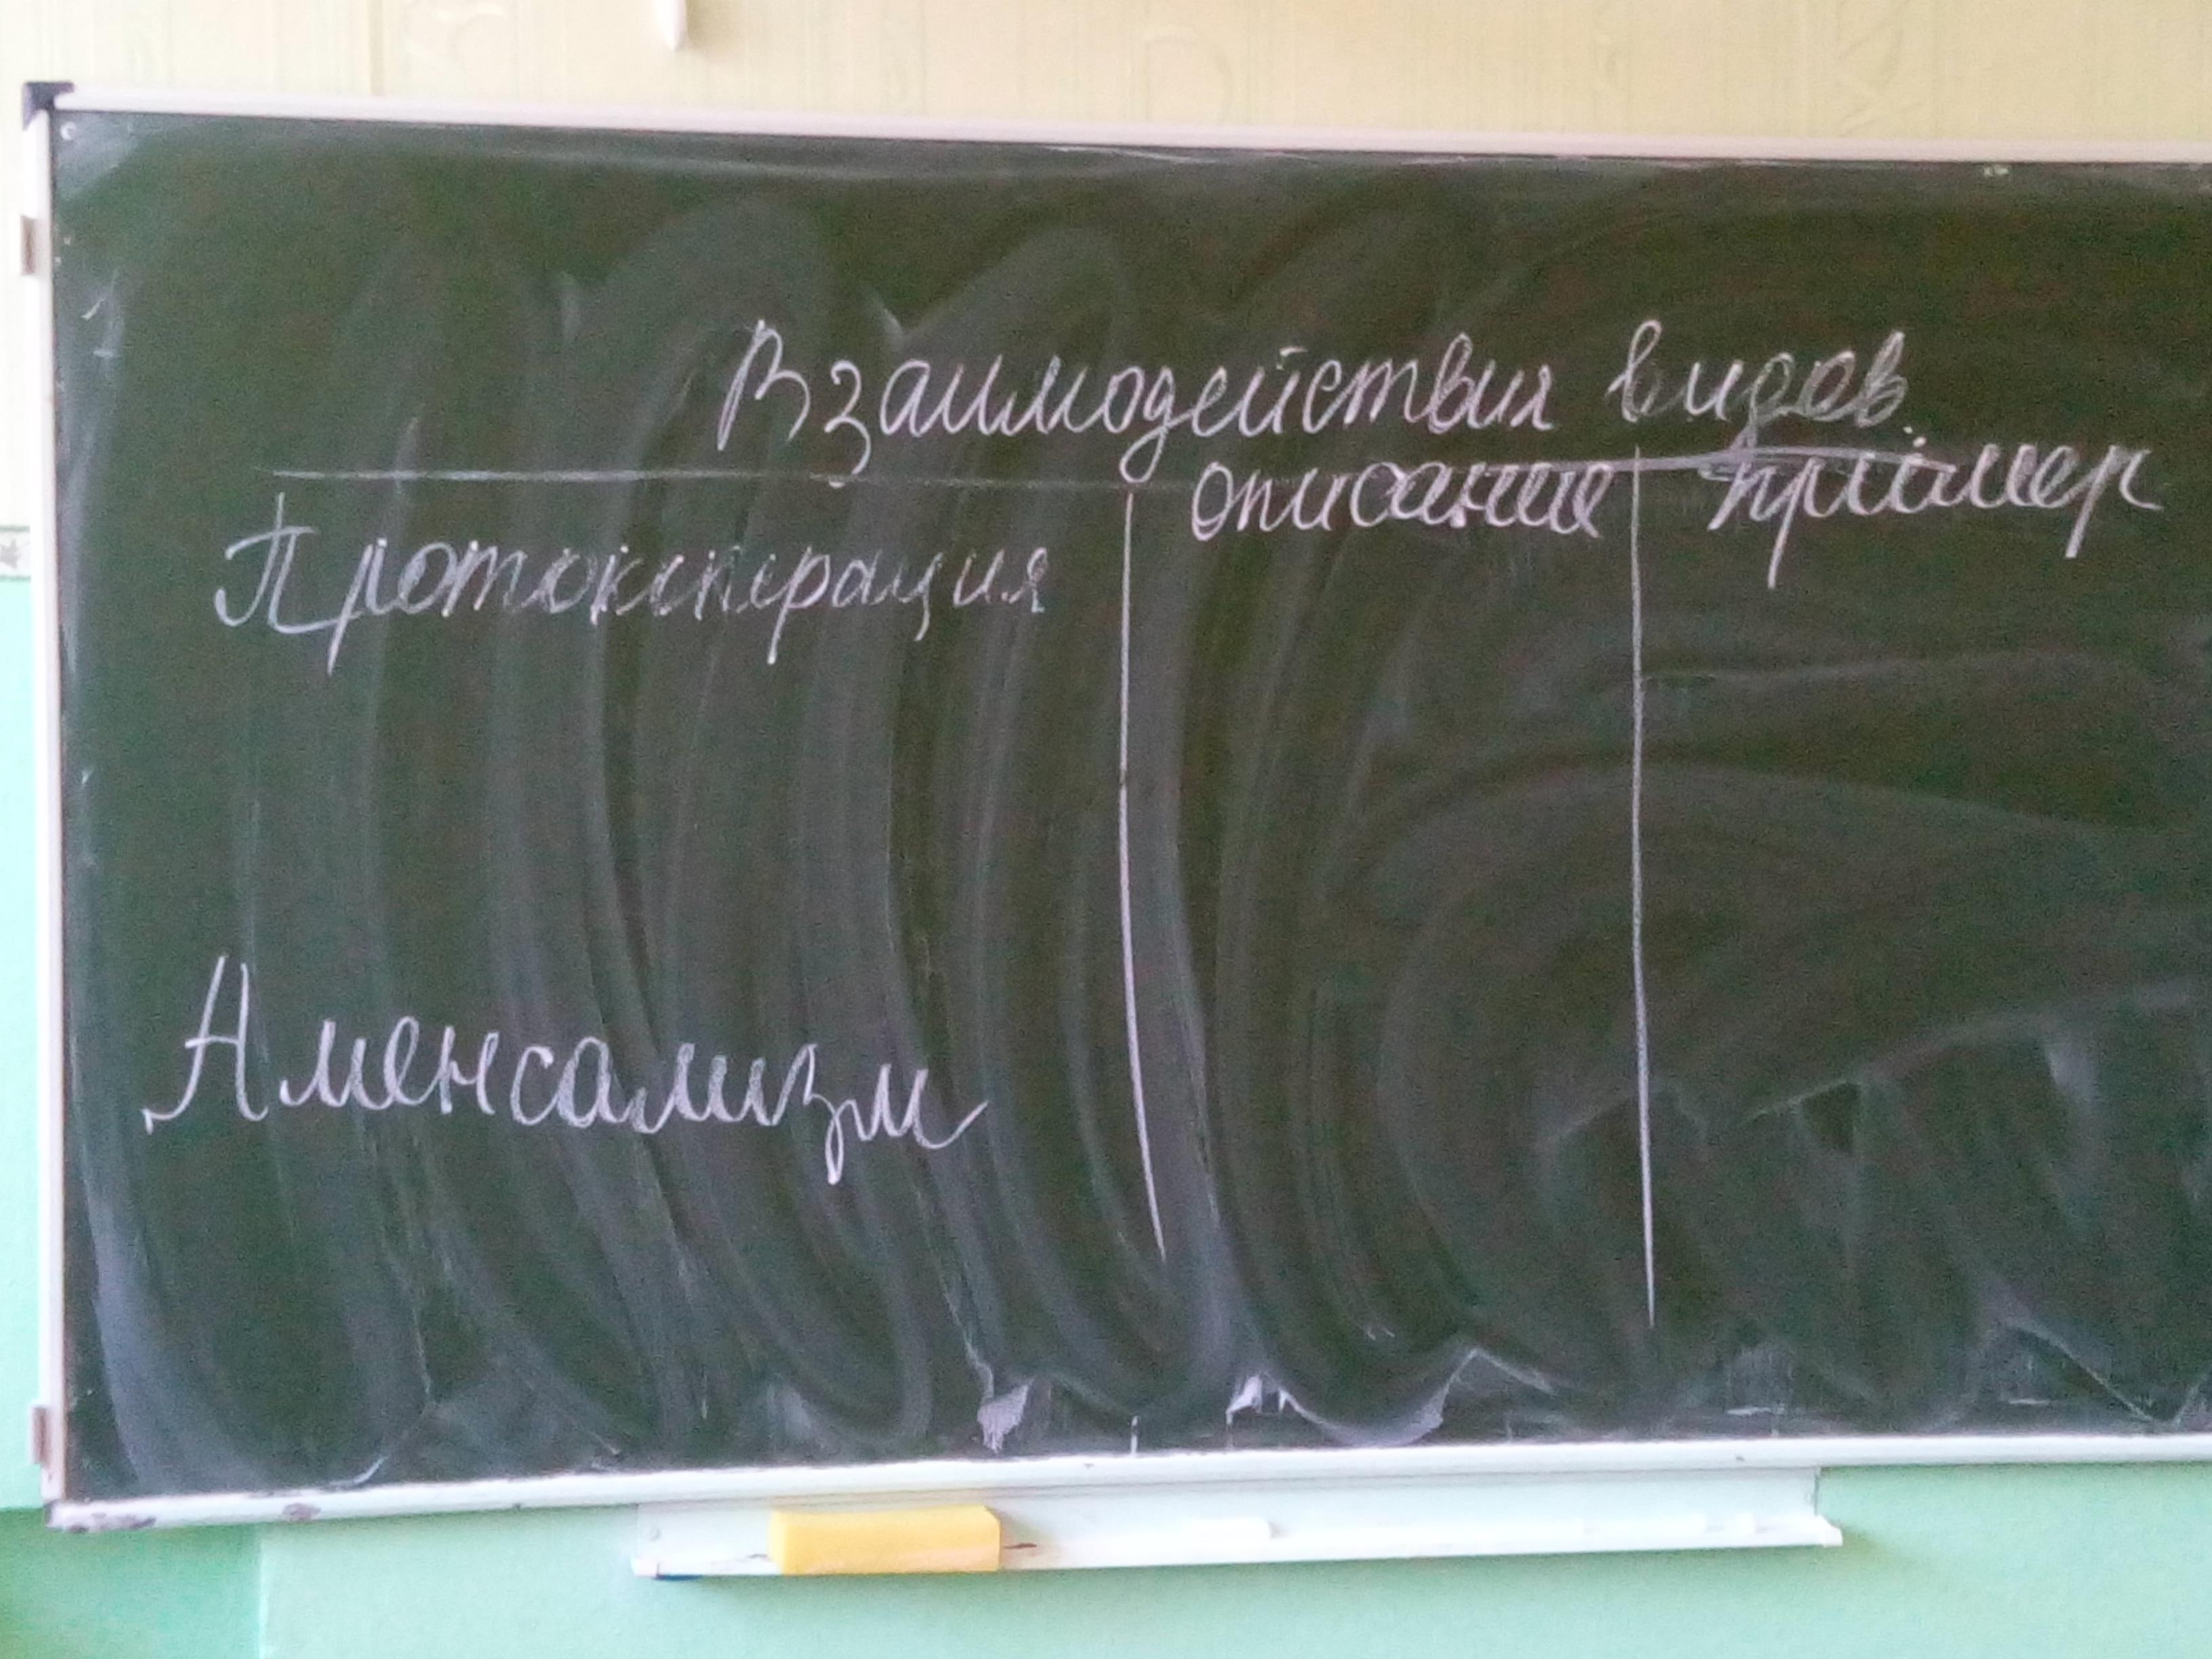 Взаимодействия видов
описание пример
Протокоперация
Аменсализм